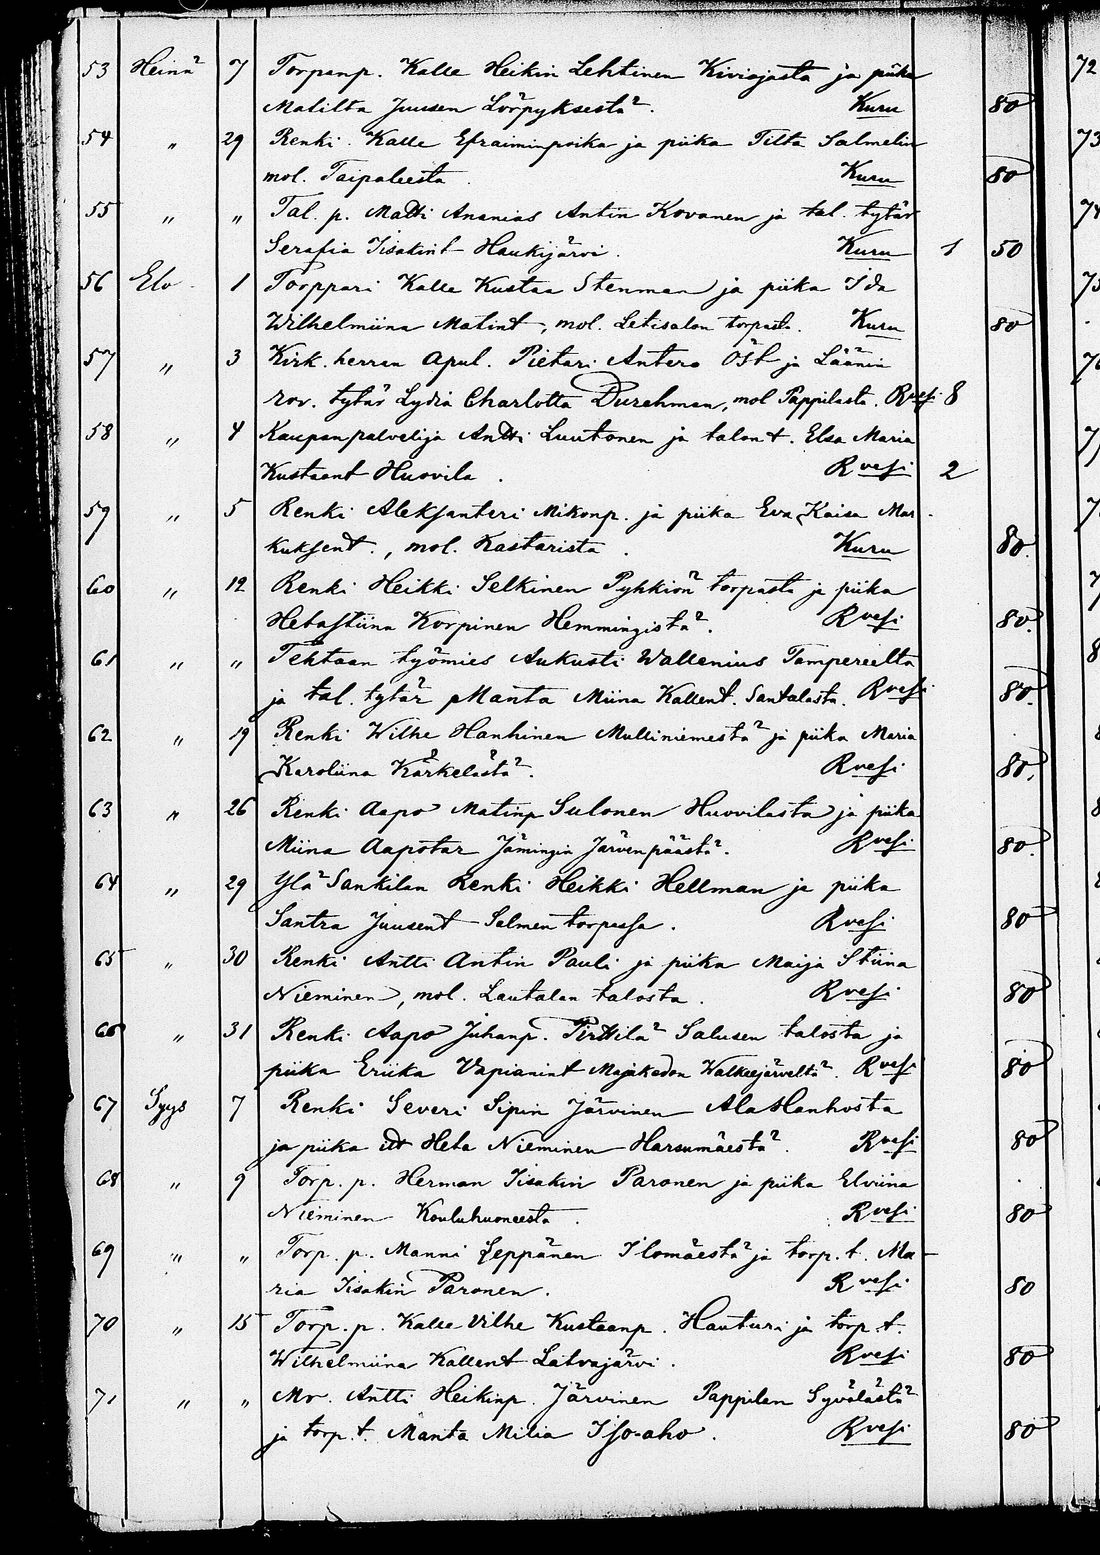 53 Heinä 7 Torpanp. Kalle Heikin Lehtinen Kiviojasta ja piika 72
Matilta Juusen Lörpyksestä. Kuru 80
54 " 29 Renki Kalle Efraiminpoika ja piika Tilta Salmelin 73
mol. Taipaleesta Kuru 80
55 " " Tal. p. Matti Ananias Antin Kovanen ja tal. tytär 74
Serafia Iisakint Haukijärvi. Kuru 1 50
56 Elo 1 Torppari Kalle Kustaa Stenman ja piika Ida
Wilhelmiina Matint, mol. torpasta. Kuru 80
57 " 3 Kirk. herran apul. Pietari Antero Öst ja Läänin
rov. tytär Lydia Charlotta Durchman, mol Pappilasta. Rvesi 8
58 " 4 Kaupanpalvelija Antti Luutonen ja talon t. Elsa Maria
Kustaant Huovila. Rvesi 2
59 " 5 Renki Aleksanteri Mikonp. ja piika Eva Kaisa Mar-
kuksent., mol. Kastarista. Kuru 80.
60 " 12 Renki Heikki Selkinen torpasta ja piika
Hetastiina Korpinen Hemmingistä. Rvesi 80.
61 " " Tehtaan työmies Aukusti Wallenius Tampereelta
ja tal. tytär Manta Miina Kallent. Santalasta. Rvesi 80.
62 " 19 Renki Wilhe Hanhinen Mulliniemestä ja piika Maria
Karoliina Kärkelästä. Rvesi 80.
63 " 26 Renki Aapo Matinp Sulonen Huovilasta ja piika
Miina Aapotar Jämingin Järvenpäästä. Rvesi 80.
64 " 29 Ylä Sankilan Renki Heikki Hellman ja piika
Santra Juusent Salmen torpassa. Rvesi 80
65 " 30 Renki Antti Antin Pauli ja piika Maija Stiina
Nieminen, mol. Lautalan talosta. Rvesi 80
66 " 31 Renki Aapo Juhanp. Pirttilä Salusen talosta ja
piika Eriika Vapianint Majakedon Walkeejärveltä. Rvesi 80
67 Syys 7 Renki Severi Sipin Järvinen AlaHanhosta
ja piika Heta Nieminen Harsumäestä. Rvesi 80
68 " 9 Torp. p. Herman Iisakin Paronen ja piika Elviina
Nieminen Kouluhuoneesta. Rvesi 80
69 " " Torp. p. Manni Seppänen Ilomäestä ja torp. t. Ma-
ria Iisakin Paronen. Rvesi 80
70 " 15 Torp. p. Kalle Vilhe Kustaanp. Hauturi ja torp. t.
Wilhelmiina Kallent Latvajärvi. Rvesi 80
71 " " Mr. Antti Heikinp. Järvinen Pappilan Syvälästä
ja torp. t. Manta Milia Iso-aho. Rvesi 80